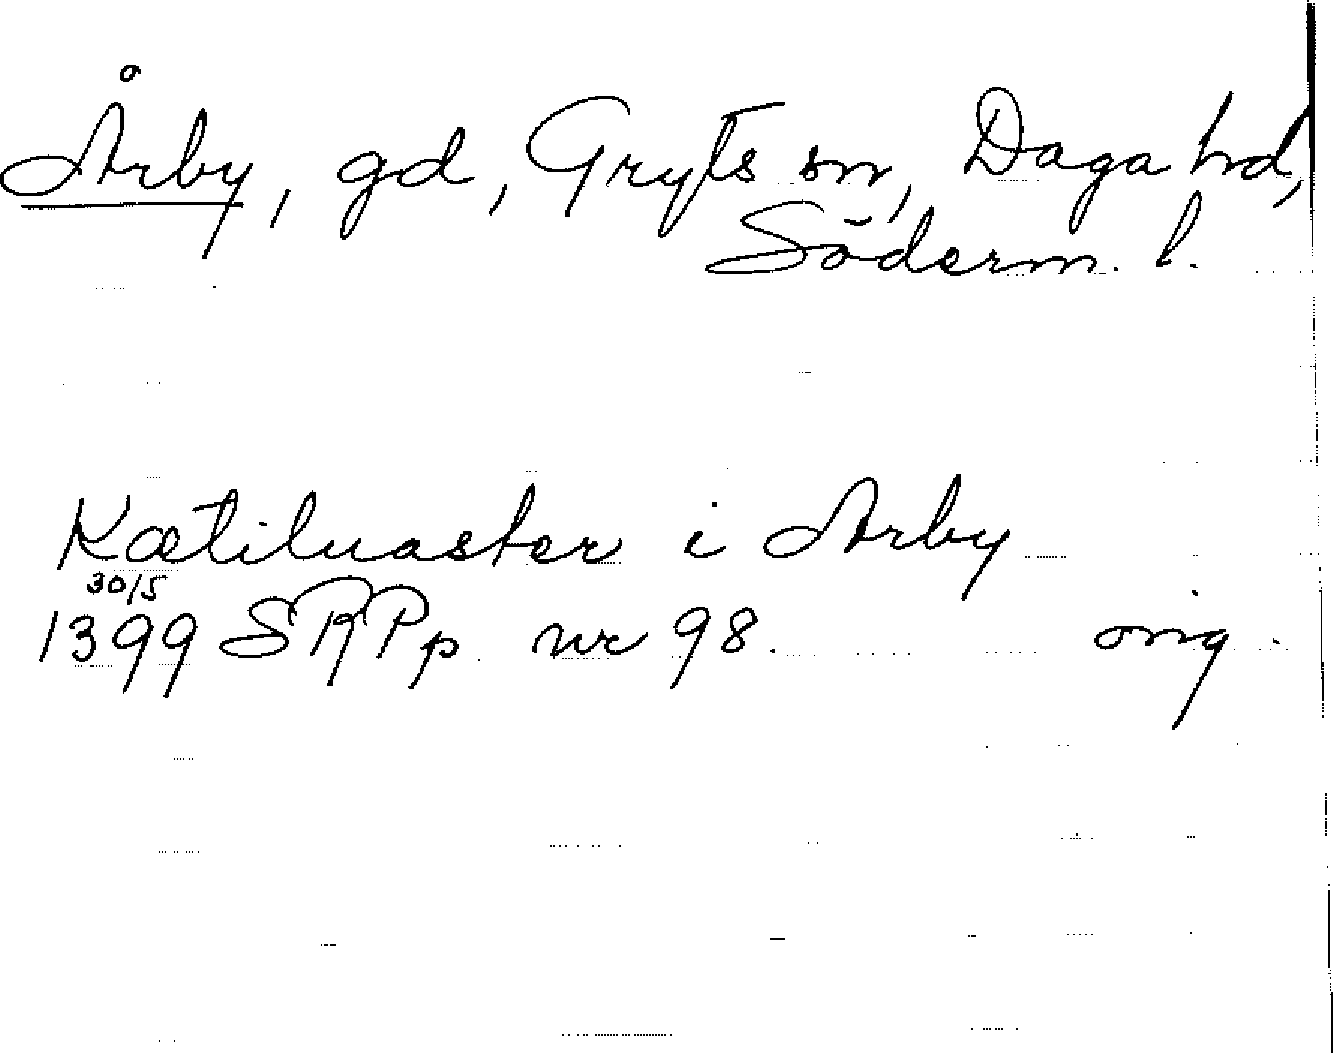 Årby, gd, Gryts sn, Daga hd,
Söderm. l.
Kætiluaster i Arby
30/5
1399 SRPp nr 98. orig.